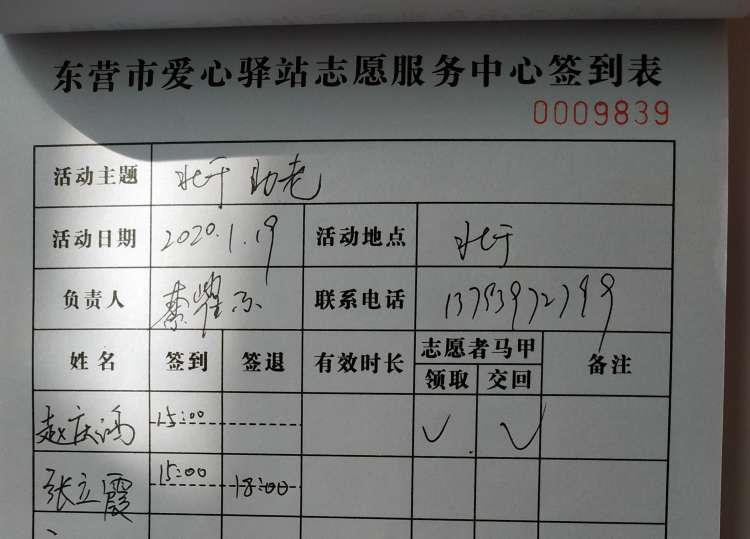 东营市爱心驿站志愿服务中心签到表
0009839
活动主题 北于 助老
活动日期 2020.1.19 活动地点 北于
负责人 联系电话
姓名 签到 签退 有效时长 志愿者马甲 备注
领取 交回
赵庆鸿 15:00 ✓ ✓
张立霞 15:00 18:00